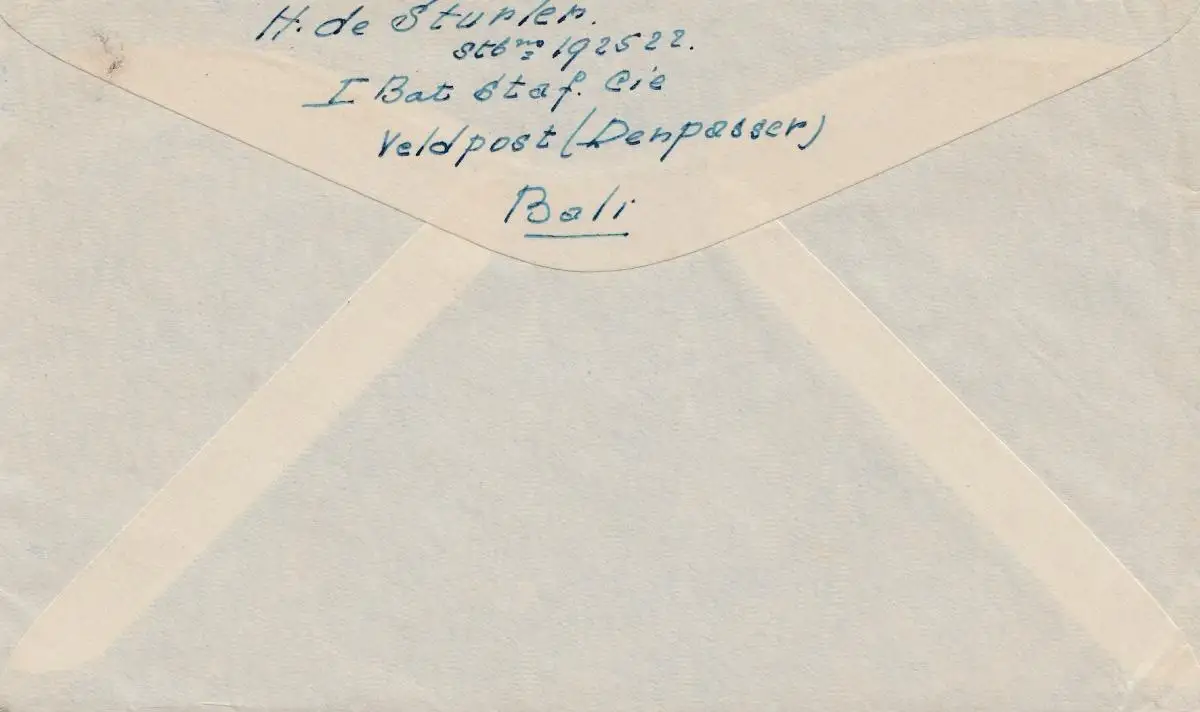 H. de Sturler.
Stbno 192522.
I Bat Staf. Cie
Veldpost (Denpasser)
Bali